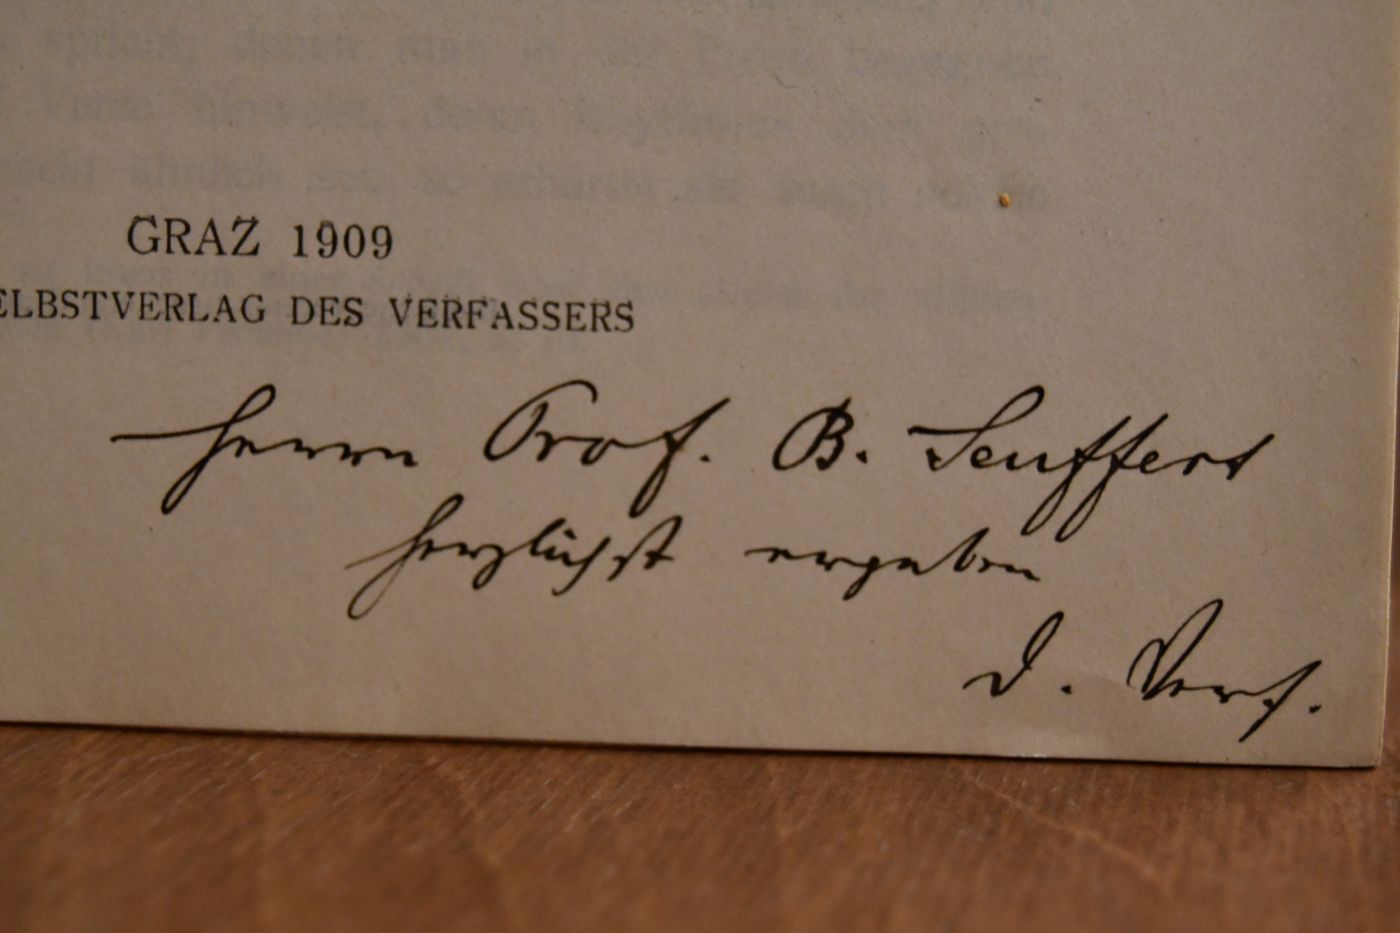 GRAZ 1909
ELBSTVERLAG DES VERFASSERS
Herrn Prof. B. Seuffert
herzlichst ergeben
d. Verf.